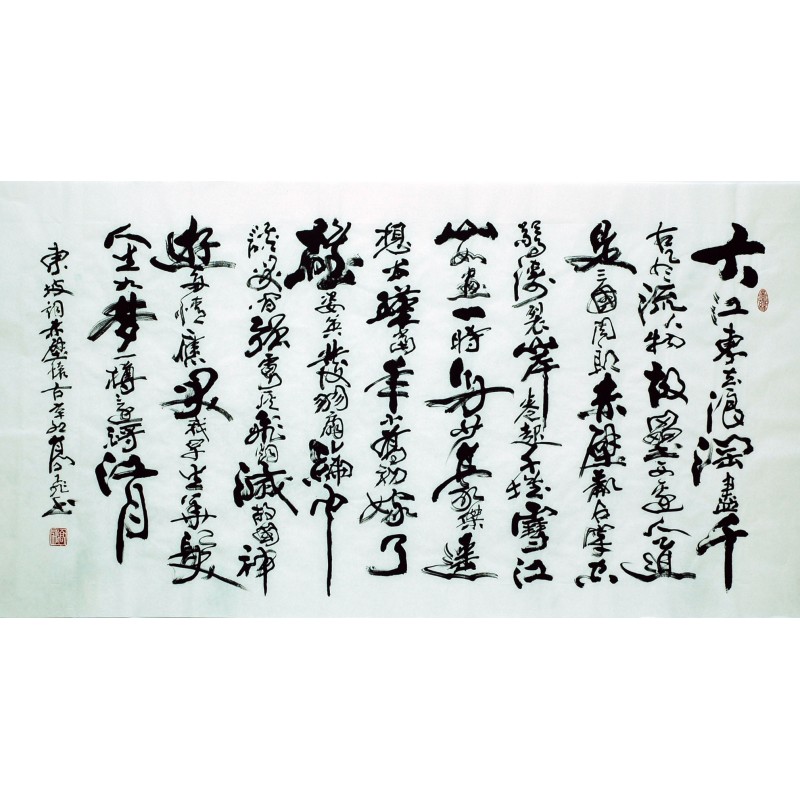 大江東去浪淘盡千
古風流人物故壘西邊人道
是三國周郎赤壁亂石穿空
驚濤裂岸卷起千堆雪江
山如畫一時多少豪傑遙
想公瑾當年小喬初嫁了
雄姿英發羽扇綸巾
談笑間強虜灰飛烟滅故國神
遊多情應笑我早生華髮
人生如夢一樽還酹江月
東坡詞赤壁懷古